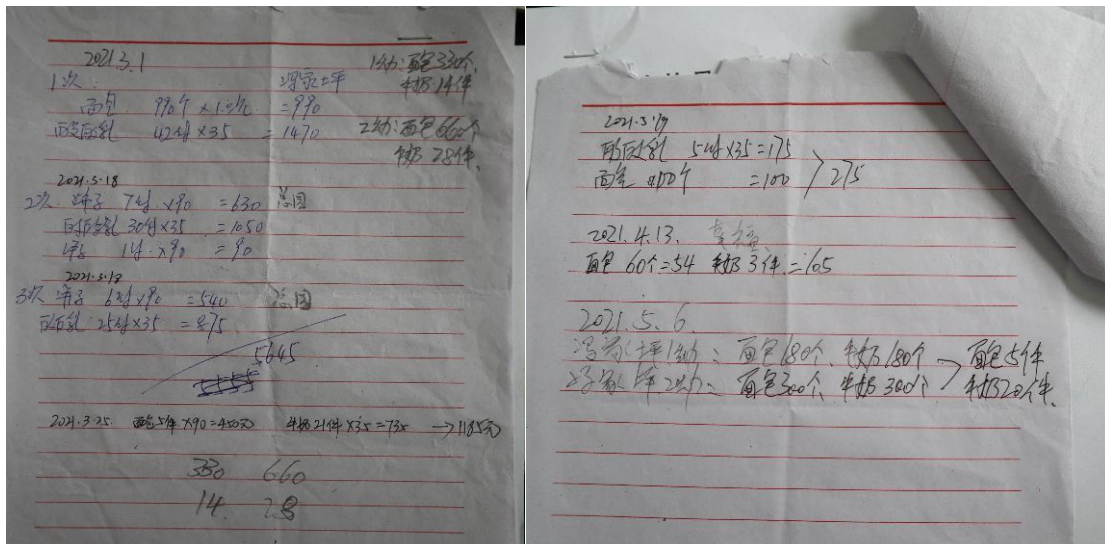 2021.3.1
1幼：面包330个、
牛奶14件
1次
面包 990个×1.0元 =990
酸酸乳 42件×35 =1470
2幼：面包660个
牛奶28件、
2021.3.18
2次 7件×90 =630 总园
酸酸乳 30件×35 =1050
1件×90 =90
2021.3.18
3次 6件×90 =540 总园
酸酸乳 25件×35 =875
5645
2021.3.25. 面包5件×90=450元 牛奶21件×35=735 →1185元
330 660
14. 28
2021.3.19
酸酸乳 5件×35=175
面包 100个 =100
275
2021.4.13. 幸福
面包 60个=54 牛奶3件=105
2021.5.6.
冯家坪1幼：面包180个、牛奶180个 → 面包5件
冯家坪2幼：面包300个、牛奶300个 牛奶20件、